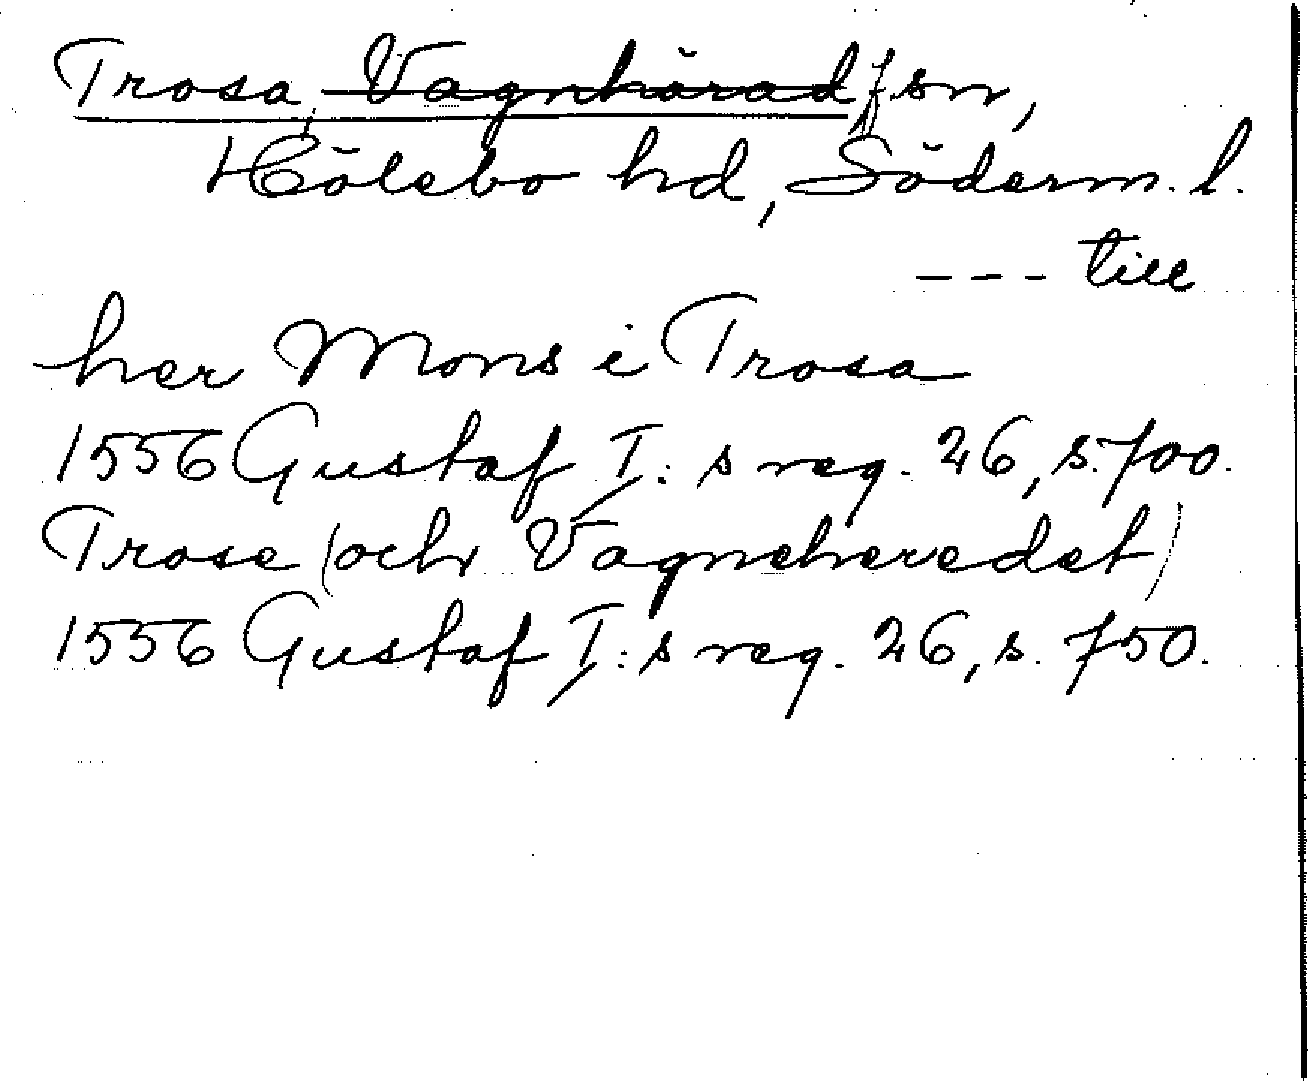 Trosa, Vagnhärad, sn,
Hölebo hd, Söderm. l.
--- till
her Mons i Trosa
1556 Gustaf I:s reg. 26, s. 700.
Trose (och Vagneheredet)
1556 Gustaf I:s reg. 26, s. 750.